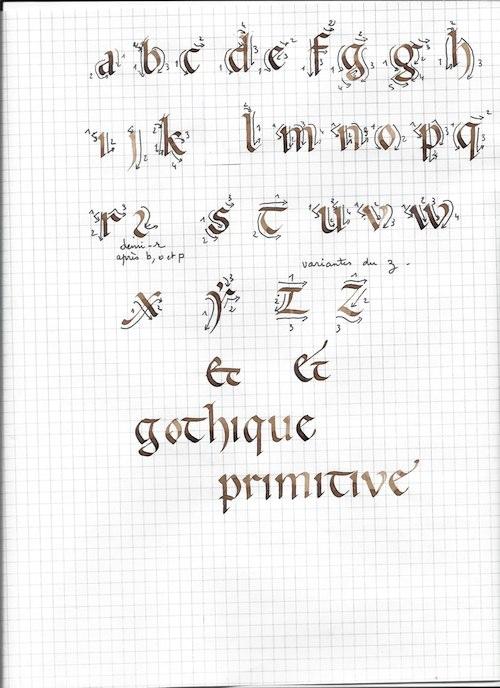 a b c d e f g g h
i j k l m n o p q
r r s t u v w
demi-r
après b, o et p
variantes du z.
x y z z
et et
gothique
primitive